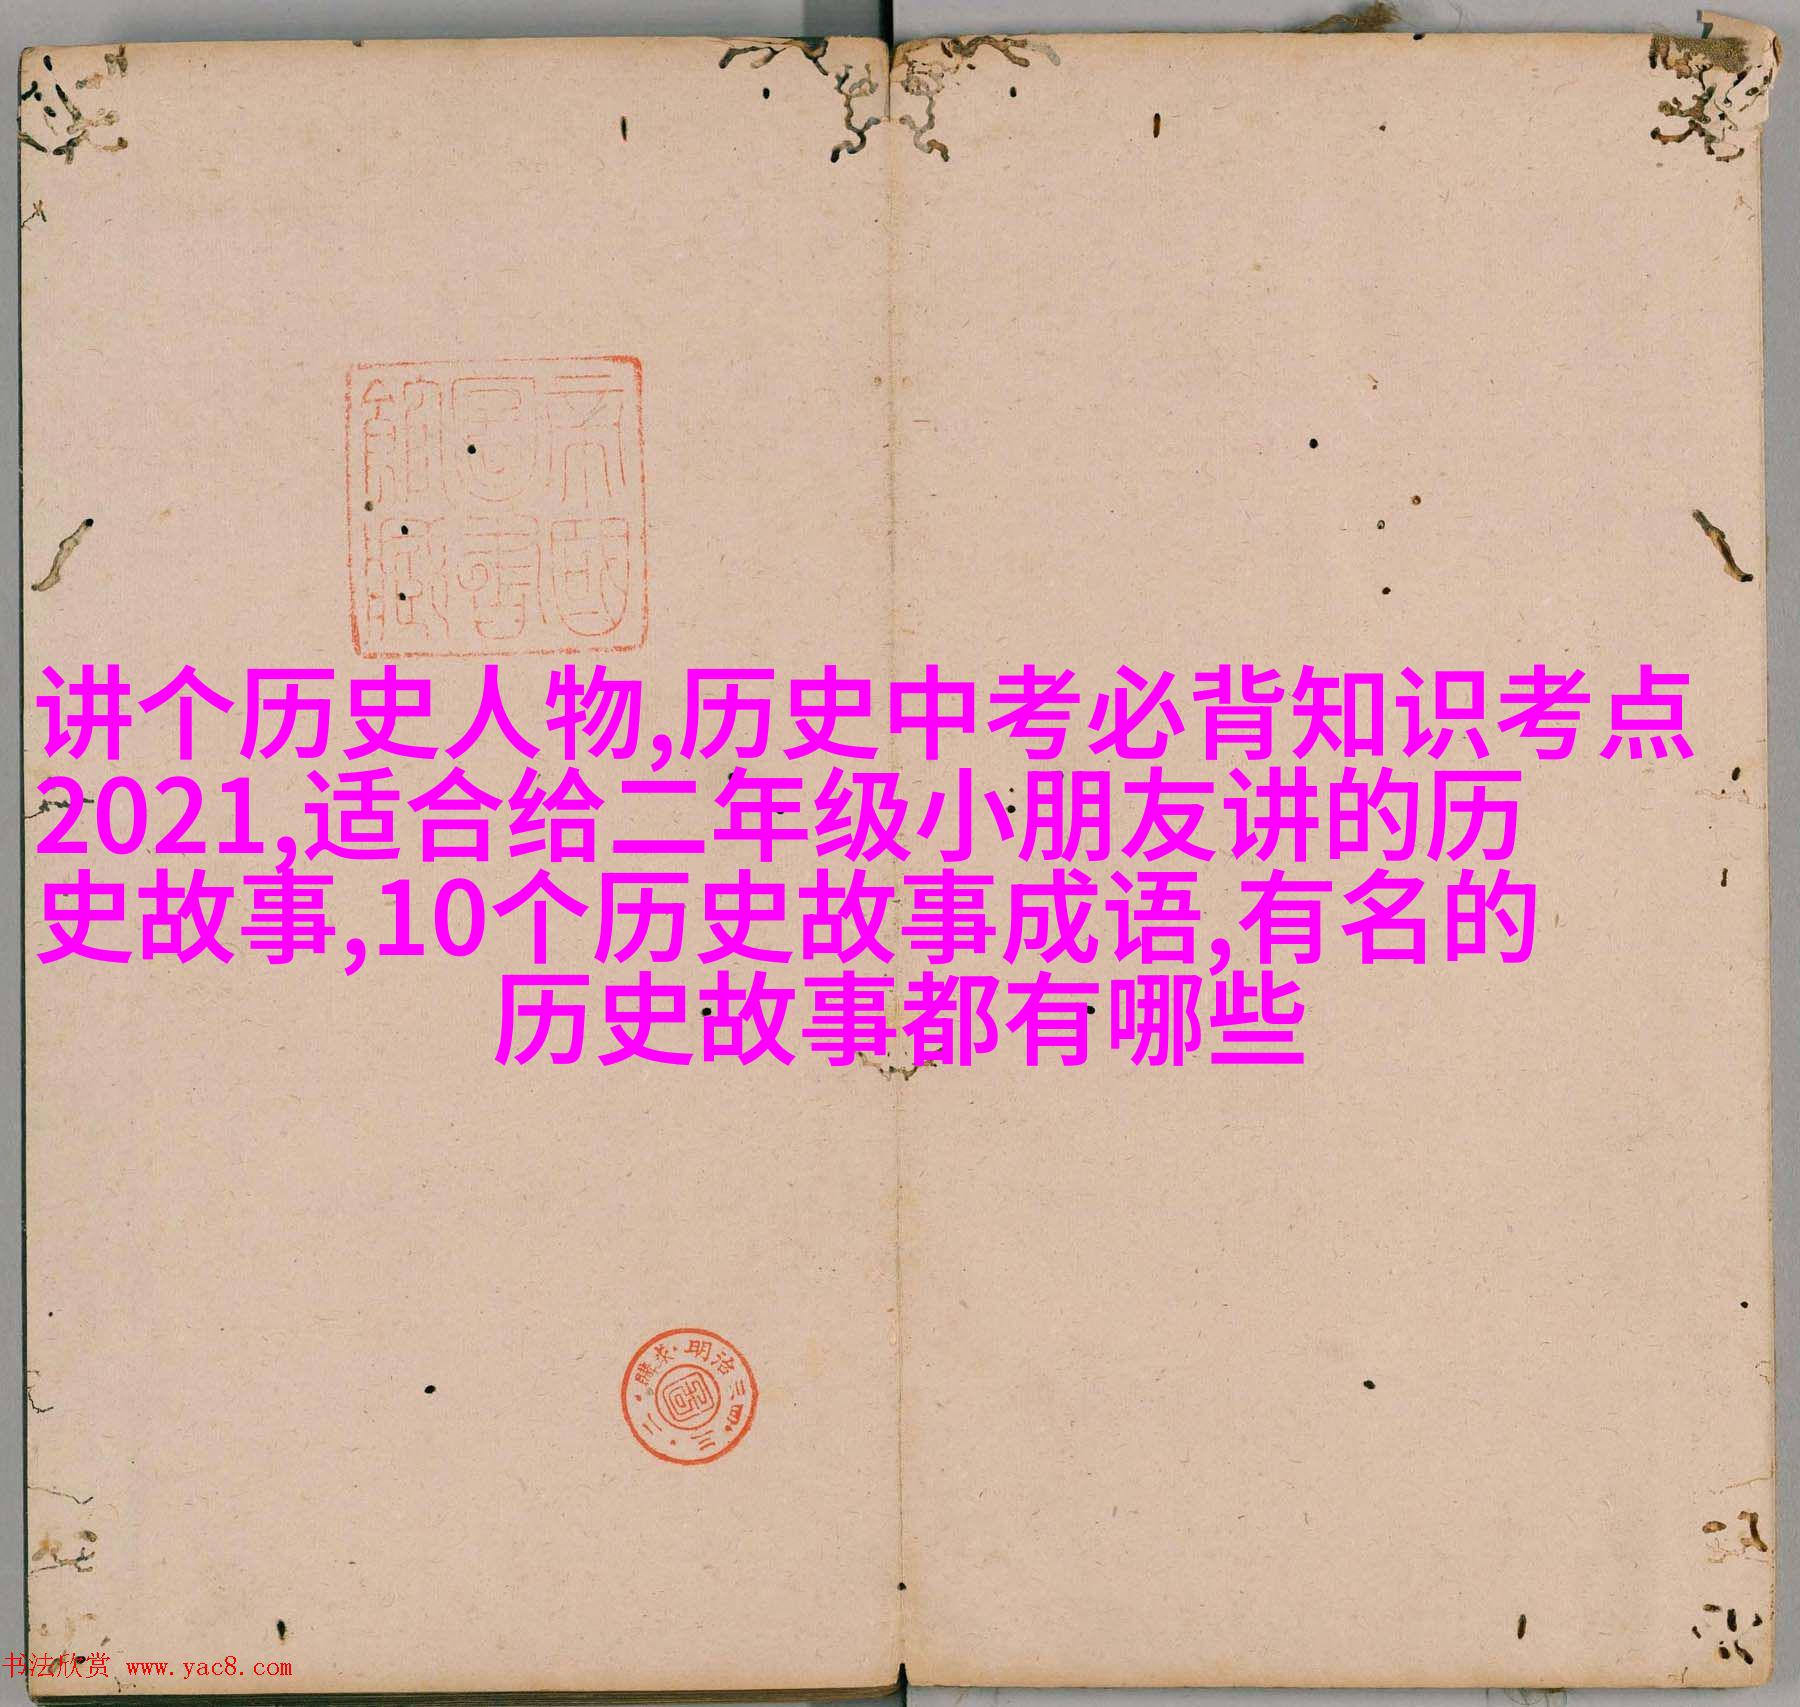 帝国
图书
馆藏
讲个历史人物,历史中考必背知识考点
2021,适合给二年级小朋友讲的历
史故事,10个历史故事成语,有名的
历史故事都有哪些
明治三四·三·二·購求·
书法欣赏 www.yac8.com